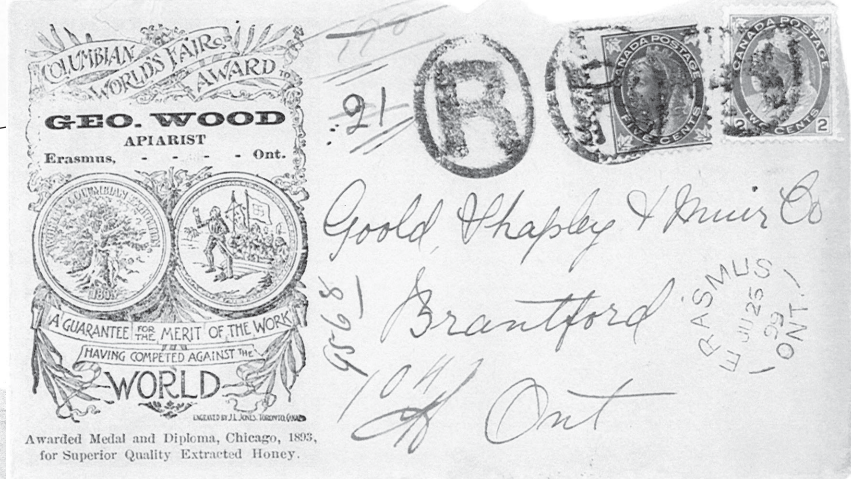 COLUMBIAN
WORLD'S FAIR
AWARD TO
GEO. WOOD
APIARIST
Erasmus, - - - - Ont.
1893
A GUARANTEE FOR THE MERIT OF THE WORK
HAVING COMPETED AGAINST THE
WORLD
ENGRAVED BY J.L. JONES. TORONTO, CANADA
Awarded Medal and Diploma, Chicago, 1893,
for Superior Quality Extracted Honey.
190
21
R
CANADA POSTAGE
FIVE CENTS
CANADA POSTAGE
2 TWO CENTS 2
Goold, Shapley & Muir Co
Brantford
Ont
ERASMUS
JU 25
99
ONT.